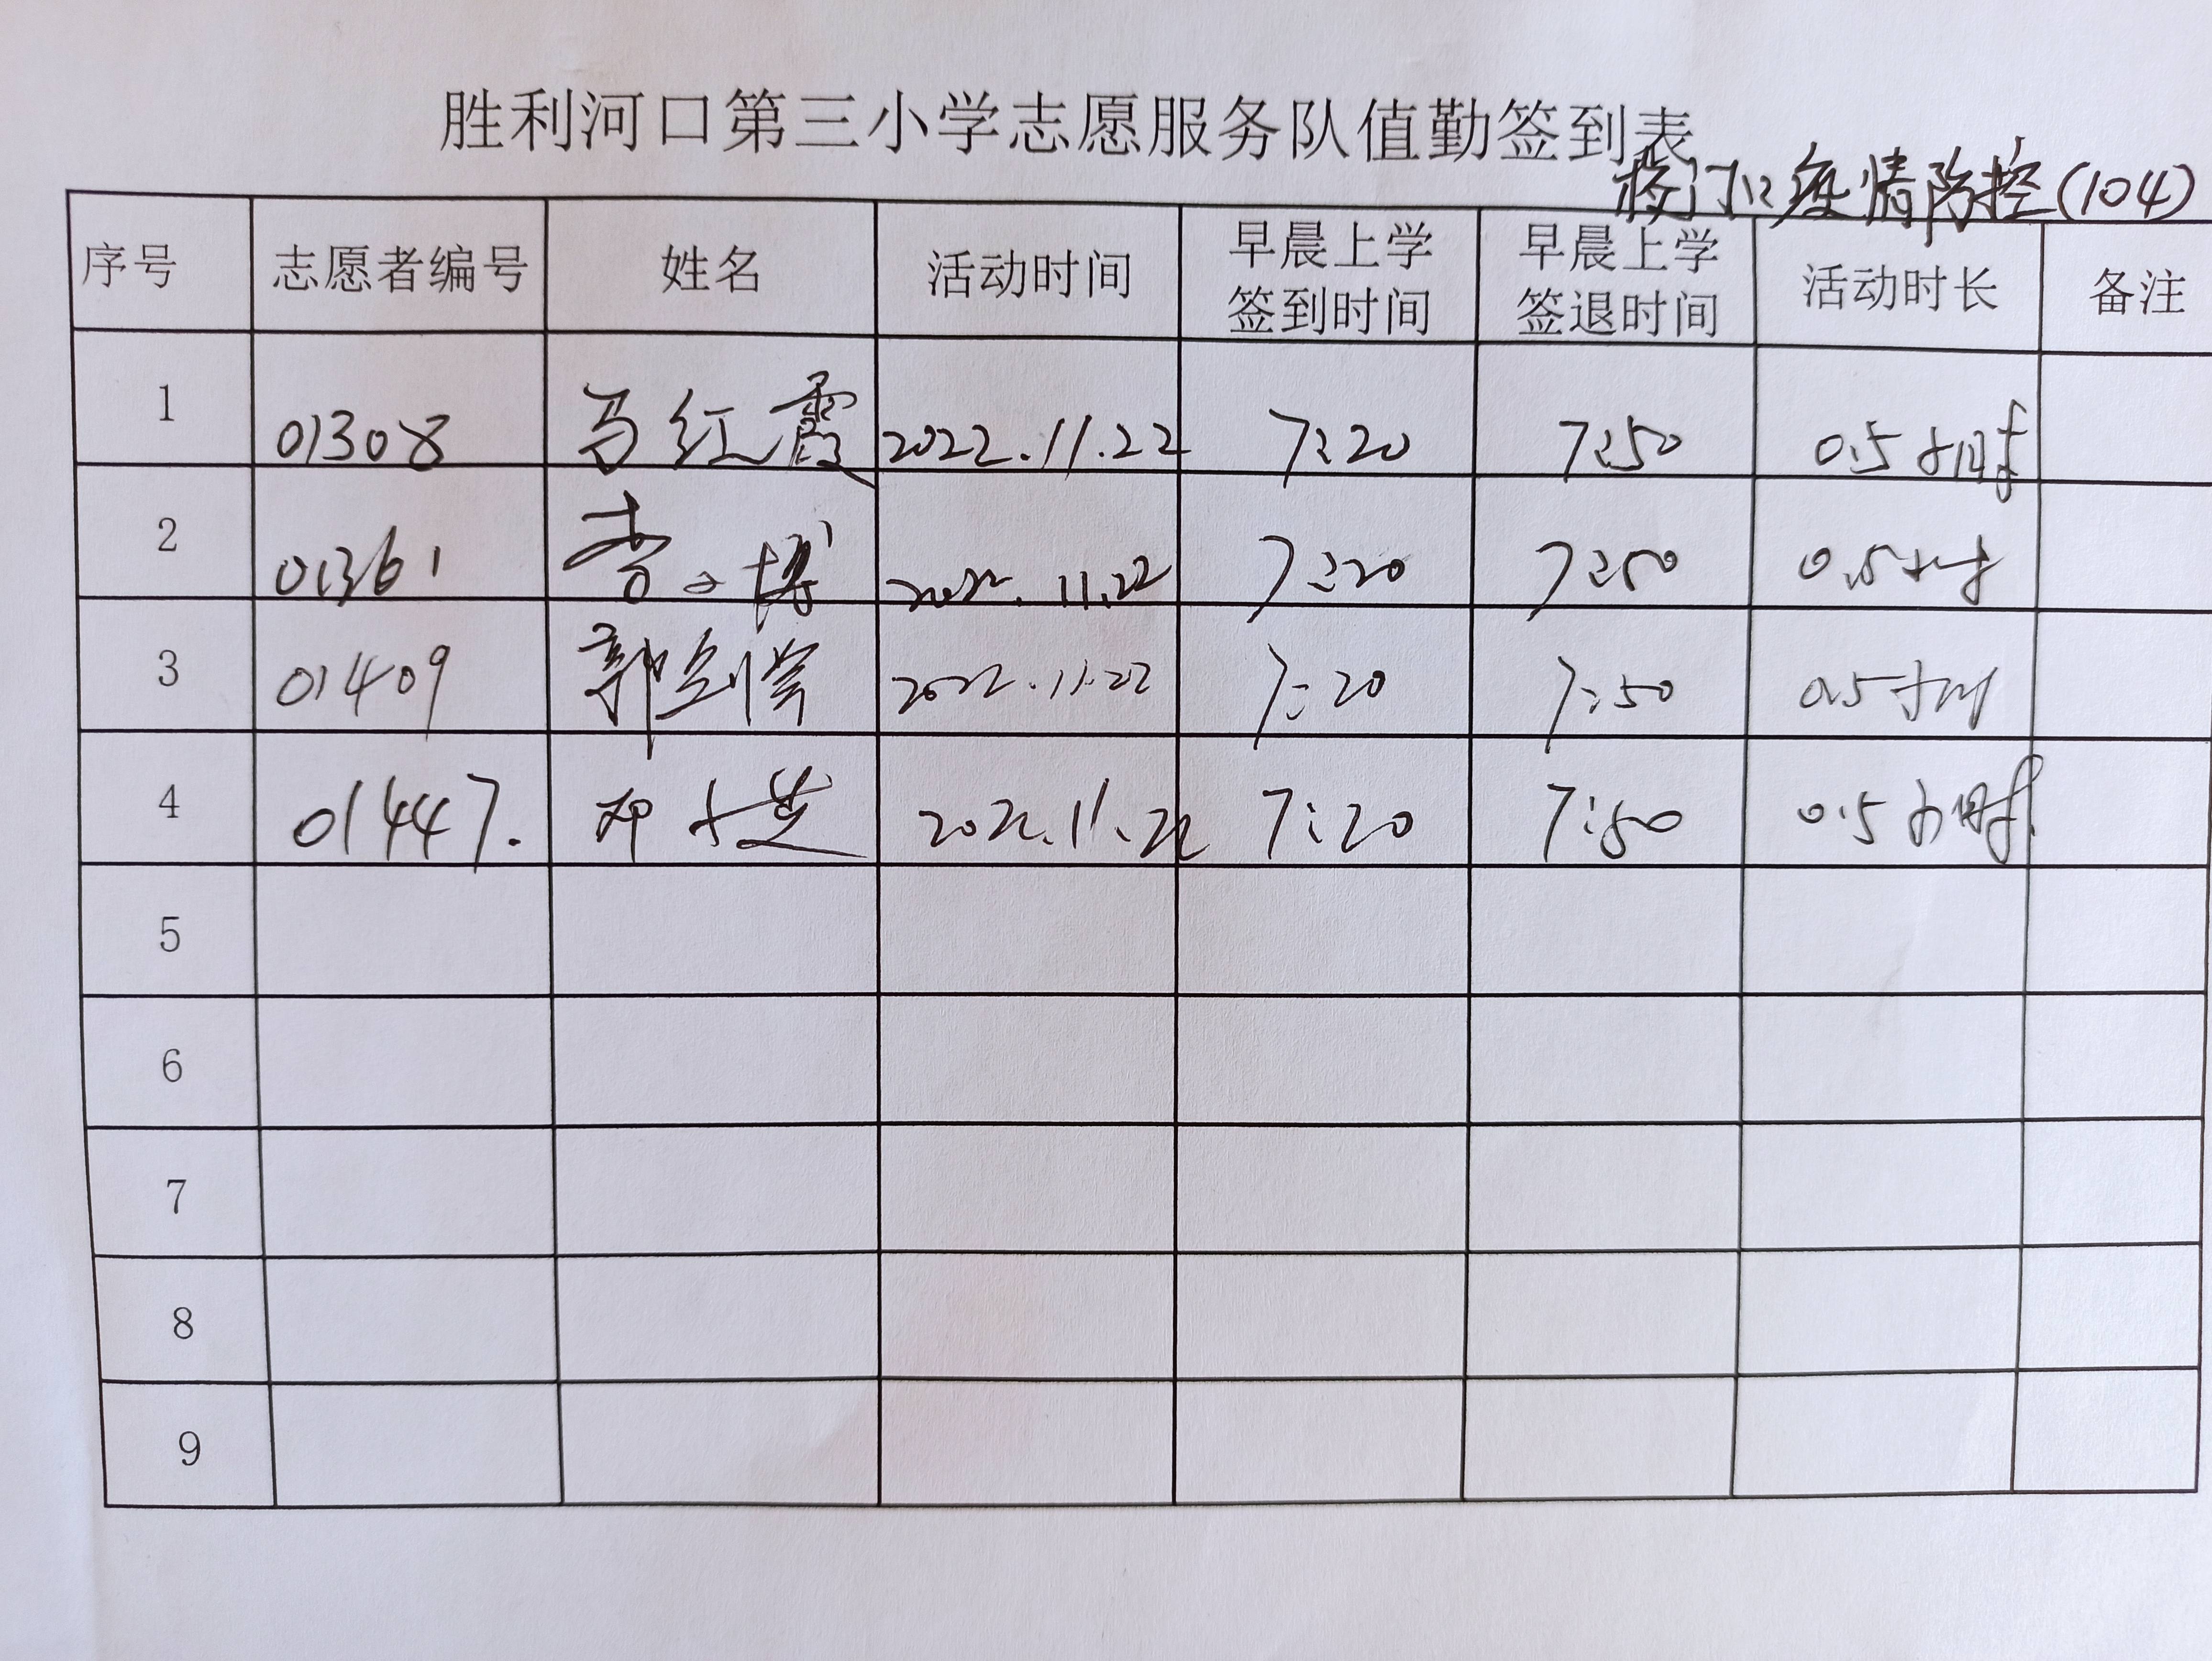 胜利河口第三小学志愿服务队值勤签到表
校门口疫情防控(104)
序号 志愿者编号 姓名 活动时间 早晨上学签到时间 早晨上学签退时间 活动时长 备注
1 01308 马红霞 2022.11.22 7:20 7:50 0.5小时
2 01361 李 博 2022.11.22 7:20 7:50 0.5小时
3 01409 郭剑 2022.11.22 7:20 7:50 0.5小时
4 01447. 邓小芝 2022.11.22 7:20 7:50 0.5小时
5
6
7
8
9